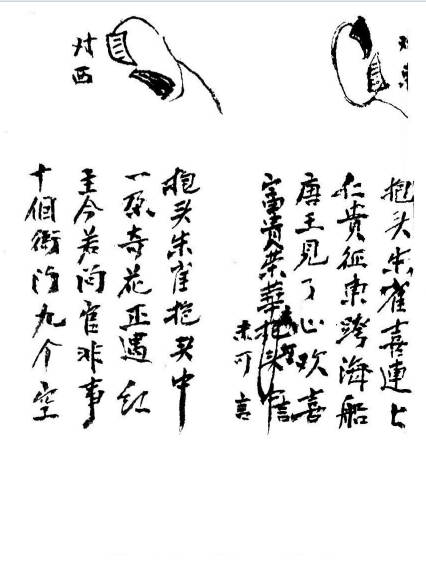 抱头朱雀喜連上
仁貴征東跨海船
唐王見了心欢喜
富貴荣華抱头
未可言
对西
抱头朱雀抱头中
一朵奇花正遇红
至今若问官非事
十個衙门九个空